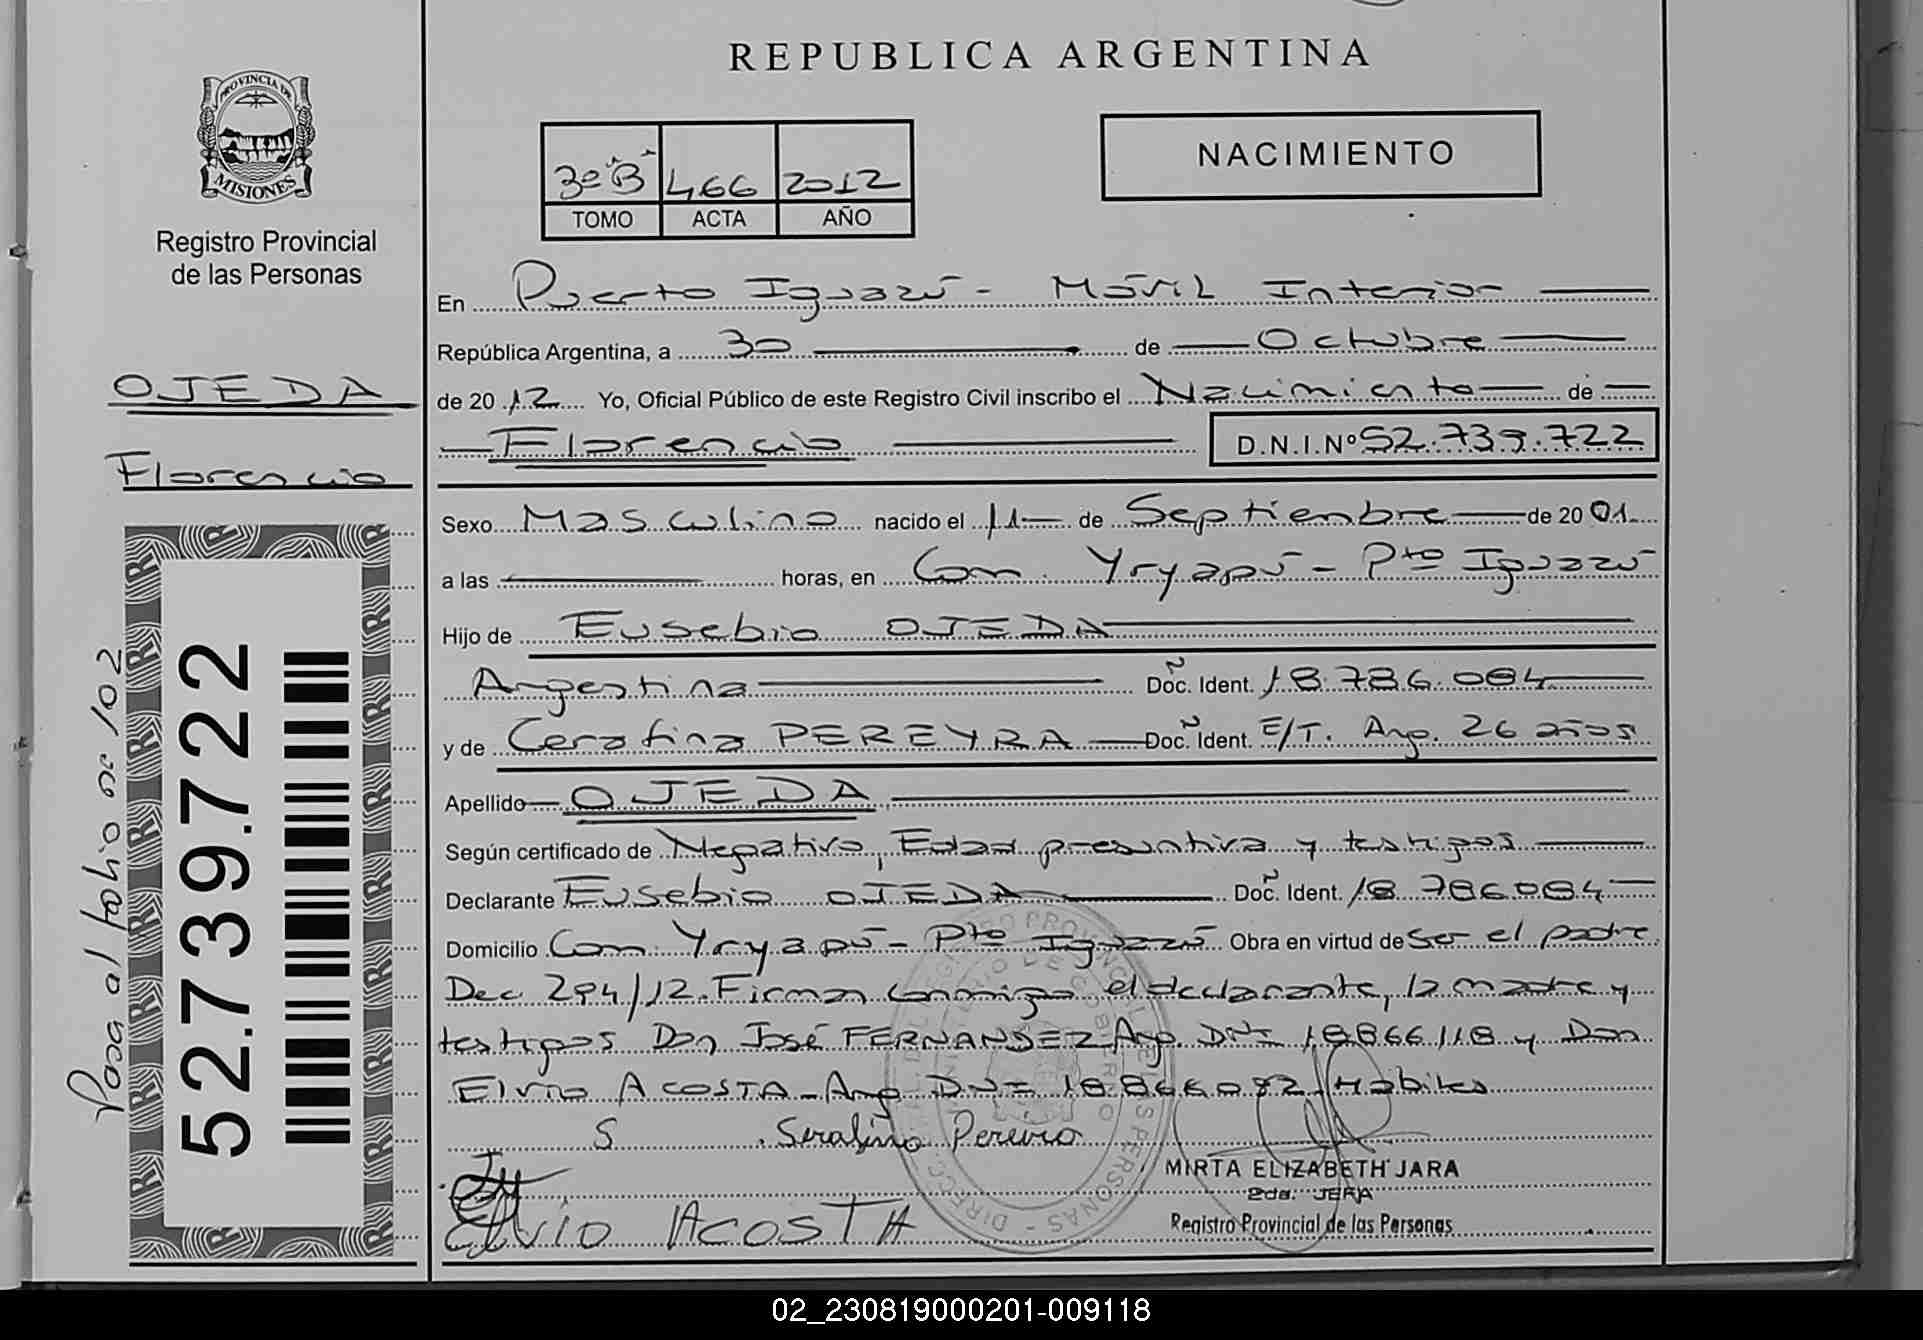 REPUBLICA ARGENTINA
PROVINCIA DE
MISIONES
Registro Provincial
de las Personas
3º "B" 466 2012
TOMO ACTA AÑO
NACIMIENTO
OJEDA
Florencio
52.739.722
Pasa al folio nº 102
En Puerto Iguazú - Móvil Interior
República Argentina, a 30 de Octubre
de 2012 Yo, Oficial Público de este Registro Civil inscribo el Nacimiento de
Florencio D.N.I.Nº 52.739.722
Sexo Masculino nacido el 11 de Septiembre de 2001
a las horas, en Com. Yryapú - Pto Iguazú
Hijo de Eusebio OJEDA
Argentina Doc. Ident. 18.786.084
y de Cerafina PEREYRA Doc. Ident. E/T. Arg. 26 años
Apellido OJEDA
Según certificado de Negativo, Edad presuntiva y testigos
Declarante Eusebio OJEDA Doc. Ident. 18.786.084
Domicilio Com. Yryapú - Pto Iguazú Obra en virtud de ser el padre
Dec 294/12. Firman conmigo el declarante, la madre y
testigos Don José FERNANDEZ Arg. DNI 18866118 y Don
Elvio ACOSTA - Arg DNI 18866082 Habiles
S Serafina Pereira
ELVIO ACOSTA
MIRTA ELIZABETH JARA
2da. JEFA
Registro Provincial de las Personas
02_230819000201-009118